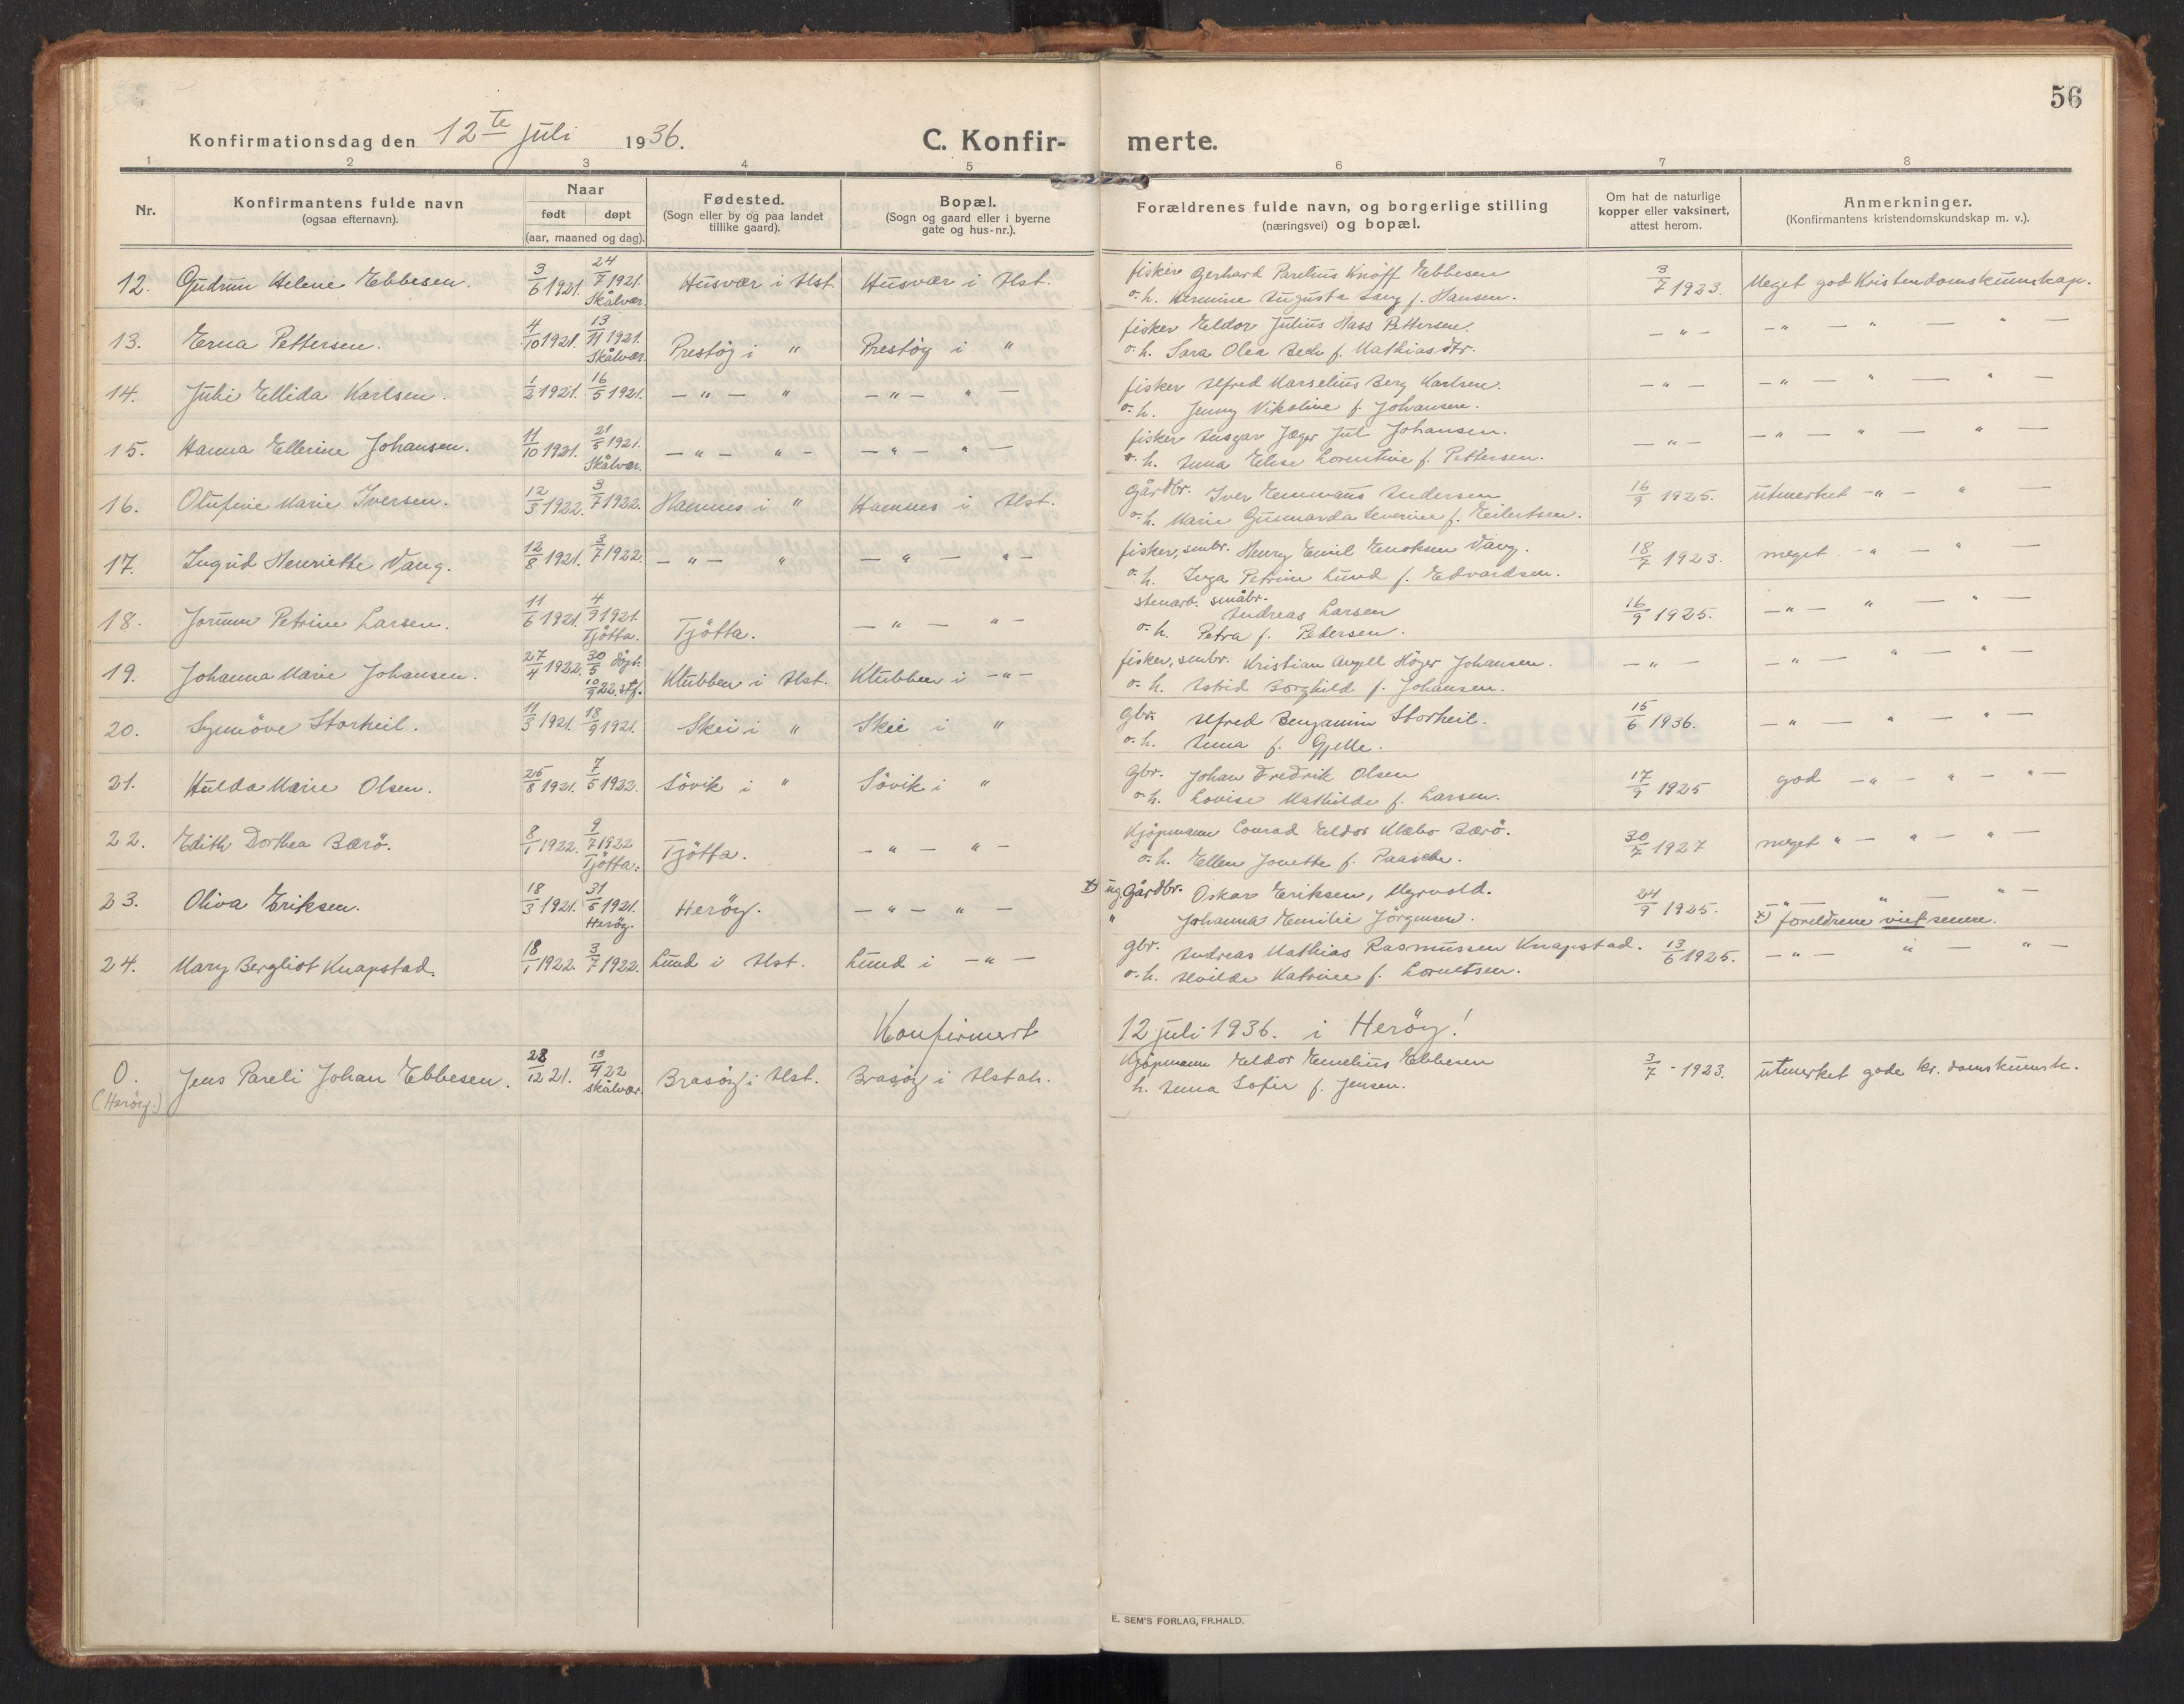 56
Konfirmationsdag den 12te juli 1936.
C. Konfir- merte.
1 2 3 4 5 6 7 8
Nr.
Konfirmantens fulde navn
(ogsaa efternavn).
Naar
født døpt
(aar, maaned og dag).
Fødested.
(Sogn eller by og paa landet
tillike gaard).
Bopæl.
(Sogn og gaard eller i byerne
gate og hus-nr.).
Forældrenes fulde navn, og borgerlige stilling
(næringsvei) og bopæl.
Om hat de naturlige
kopper eller vaksinert,
attest herom.
Anmerkninger.
(Konfirmantens kristendomskundskap m. v.).
12. Gudrun Helene Ebbesen. 3/6 1921. 24/7 1921. Skålvær. Husvær i Alst. Husvær i Alst. fisker Gerhard Parelius Knoff Ebbesen 3/7 1923. Meget god Kristendomskunnskap.
o. h. Hermine Augusta Lang f. Hansen.
13. Erna Pettersen. 4/10 1921. 13/11 1921. Skålvær. Prestöy i " Prestöy i " fisker Eldor Julius Hass Pettersen. — " — — " — " — " —
o. h. Sara Olea Bech f. Mathiasdtr.
14. Julie Ellida Karlsen. 1/2 1921. 16/5 1921. — " — " — " — " — fisker Alfred Marselius Berg Karlsen. — " — — " — " — " —
o. h. Jenny Nikoline f. Johansen.
15. Hanna Ellerine Johansen. 11/10 1921. 21/5 1921. Skålvær. — " — " — — " — " — fisker Ansgar Jæger Jul Johansen. — " — — " — " — " —
o. h. Anna Elise Lorentine f. Pettersen.
16. Olufine Marie Iversen. 12/3 1922. 3/7 1922. Hamnes i " Hamnes i Alst. Gårdbr. Iver Emmaus Andersen 16/9 1925. utmerket — " — " —
o. h. Marie Gunnarda Severine f. Eilertsen.
17. Ingrid Henriette Vang. 12/8 1921. 3/7 1922. — " — " — " — " — fisker, smbr. Henry Emil Enoksen Vang. 18/7 1923. meget — " — " —
o. h. Inga Petrine Lund f. Edvardsen.
18. Jorunn Petrine Larsen. 11/6 1921. 4/9 1921. Tjötta. Tjötta. — " — " — stenarb. småbr.
Andreas Larsen 16/9 1925. — " — " — " —
o. h. Petra f. Pedersen.
19. Johanna Marie Johansen. 27/4 1922. 30/5 döpt. 10/9 22. stf. Klubben i Alst. Klubben i — " — fisker, smbr. Kristian Angell Höger Johansen. — " — — " — " — " —
o. h. Astrid Borghild f. Johansen.
20. Synnöve Storheil. 11/3 1921. 18/9 1921. Skei i " Skei i " gbr. Alfred Benjamin Storheil. 15/6 1936. — " — " — " —
o. h. Anna f. Gjelle.
21. Hulda Marie Olsen. 25/8 1921. 7/5 1922. Sövik i " Sövik i " Gbr. Johan Fredrik Olsen 17/9 1925 god — " — " — " —
o. h. Lovise Mathilde f. Larsen.
22. Edith Dorthea Bærö. 8/1 1922. 9/7 1922 Tjötta. Tjötta. — " — " — Kjöpmann Conrad Eldor Klæbo Bærö. 30/7 1927 meget " — " — " —
o. h. Ellen Jonette f. Paasche.
23. Oliva Eriksen. 18/3 1921. 31/5 1921. Heröy. Heröy. — " — " — x) ug. Gårdbr. Oskar Eriksen, Myrvold. 24/9 1925. — " — " — " —
" Johanna Emilie Jörgensen. x) foreldrene viet senere.
24. Mary Bergliot Knapstad. 18/1 1922. 3/7 1922. Lund i Alst. Lund i — " — gbr. Andreas Mathias Rasmussen Knapstad. 13/6 1925. — " — " — " —
o. h. Alvilde Katrine f. Lorntsen.
Konfirmert 12 juli 1936. i Heröy!
0. (Heröy.) Jens Pareli Johan Ebbesen. 28/12 21. 13/4 22 Skålvær. Brasöy i Alst. Brasöy i Alstah. Kjöpmann Eldor Emelius Ebbesen 3/7 - 1923. utmerket gode kr. domskunnsk.
h. Anna Sofie f. Jensen.
E. SEM'S FORLAG, FR.HALD.